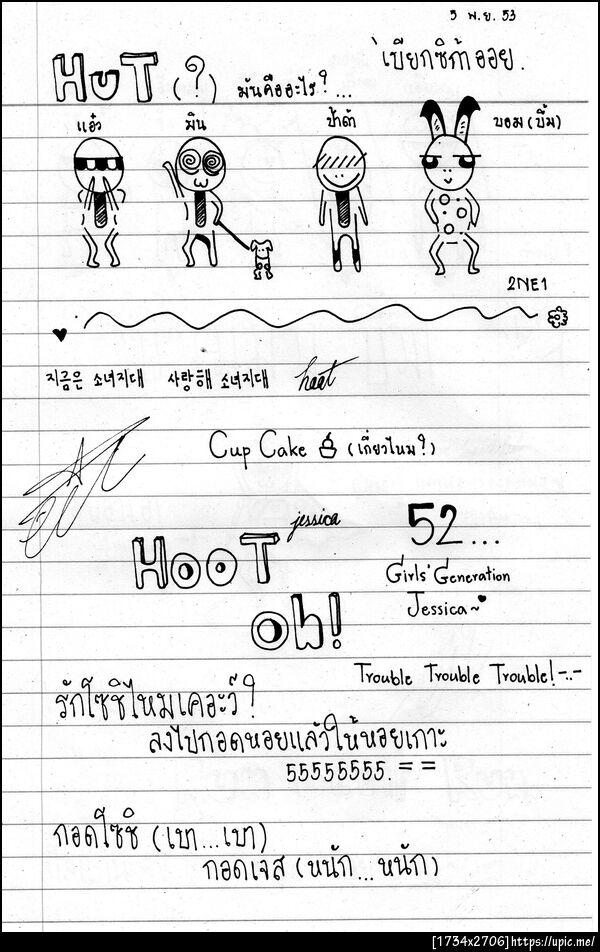 5 พ.ย. 53
เบียกซิก้าออย.
HUT (?) มันคืออะไร? ...
แอ๋ว มิน ป้าต้า บอม (บึ้ม)
2NE1
지금은 소녀시대 사랑해 소녀시대
Cup Cake (เกี่ยวไหม?)
jessica
52...
HOOT
Girls' Generation
Jessica~
Oh!
Trouble Trouble Trouble! -.-
รักโซชิไหมเคอะว์?
ลงไปกอดหอยแล้วให้หอยเกาะ
55555555. = =
กอดโซชิ (เบา...เบา)
กอดเจส (หนัก...หนัก)
[1734x2706]https://upic.me/